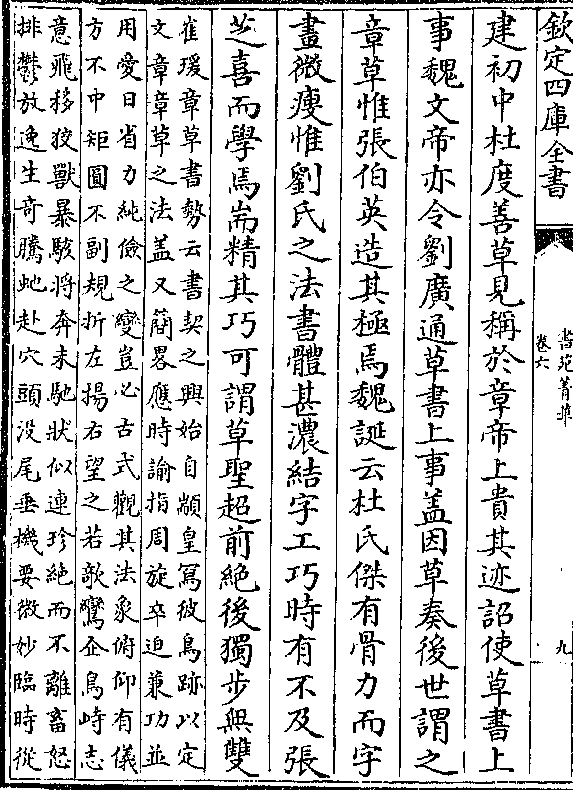 欽定四庫全書
書苑菁華
卷六
九
建初中杜度善草見稱於章帝上貴其迹詔使草書上
事魏文帝亦令劉廣通草書上事盖因草奏後世謂之
章草惟張伯英造其極焉魏誕云杜氏傑有骨力而字
畫微瘦惟劉氏之法書體甚濃結字工巧時有不及張
芝喜而學焉耑精其巧可謂草聖超前絶後獨步無雙
崔瑗章草書勢云書契之興始自顓皇寫彼鳥跡以定
文章章草之法盖又簡畧應時諭指周旋卒迫兼功並
用愛日省力純儉之變豈必古式觀其法象俯仰有儀
方不中矩圓不副規折左揚右望之若欹鸞企鳥峙志
意飛移狡獸暴駭將奔未馳狀似連珍絶而不離畜怒
排鬱放逸生奇騰虵赴穴頭没尾垂機要微妙臨時從